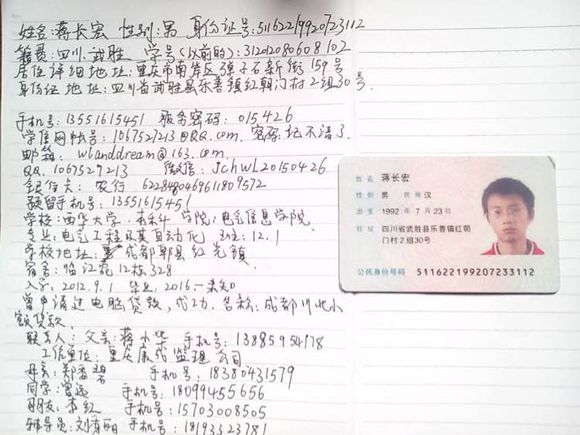 姓名:蒋长宏 性别:男 身份证号:511622199207233112
籍贯:四川武胜 学号(以前的):312012080608102
居住详细地址:重庆市南岸区弹子石新街159号
身份证地址:四川省武胜县乐善镇红朝门村2组30号
手机号:13551615451 服务密码:015426
学信网帐号:1067527213@QQ.com. 密码:记不清了
邮箱: wlanddream@163.com
QQ:1067527213 微信:jchwl20150426
银行卡:农行 6228480469611809572
预留手机号:13551615451
学校:西华大学 本科 学院:电气信息学院
专业:电气工程及其自动化 班:12.1
学校地址:成都郫县红光镇
宿舍:12栋328
入学:2012.9.1 毕业:2016
曾申请过电脑贷款,成功.名称:成都川北小
额贷款.
联系人:父亲:蒋小华 手机号:13885954178
工作单位:重庆 监理公司
母亲:郑 碧 手机号:18380431579
同学: 手机号:18099455656
朋友:李红 手机号:15703008505
辅导员:刘春丽 手机号:18193323781
姓名 蒋长宏
性别 男 民族 汉
出生 1992 年 7 月 23 日
住址 四川省武胜县乐善镇红朝
门村2组30号
公民身份号码 511622199207233112